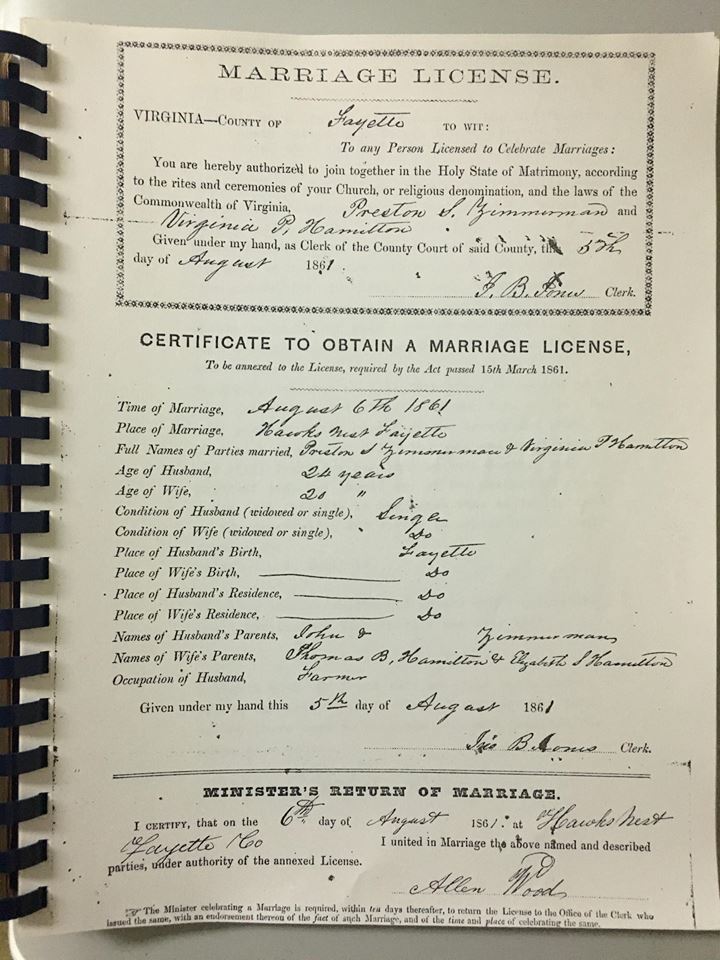 MARRIAGE LICENSE.
VIRGINIA—COUNTY OF Fayette TO WIT:
To any Person Licensed to Celebrate Marriages:
You are hereby authorized to join together in the Holy State of Matrimony, according
to the rites and ceremonies of your Church, or religious denomination, and the laws of the
Commonwealth of Virginia, Preston S. Zimmerman and
Virginia P. Hamilton
Given under my hand, as Clerk of the County Court of said County, this 5th
day of August 1861.
B. Jones Clerk.
CERTIFICATE TO OBTAIN A MARRIAGE LICENSE,
To be annexed to the License, required by the Act passed 15th March 1861.
Time of Marriage, August 6th 1861
Place of Marriage, Hawks nest Fayette
Full Names of Parties married, Preston S Zimmerman & Virginia P Hamilton
Age of Husband, 24 years
Age of Wife, 20 "
Condition of Husband (widowed or single), Single
Condition of Wife (widowed or single), Do
Place of Husband's Birth, Fayette
Place of Wife's Birth, Do
Place of Husband's Residence, Do
Place of Wife's Residence, Do
Names of Husband's Parents, John & Zimmerman
Names of Wife's Parents, Thomas B. Hamilton & Elizabeth S Hamilton
Occupation of Husband, Farmer
Given under my hand this 5th day of August 1861
B. Jones Clerk.
MINISTER'S RETURN OF MARRIAGE.
I CERTIFY, that on the 6th day of August 1861. at Hawks Nest
Fayette Co I united in Marriage the above named and described
parties, under authority of the annexed License.
Allen Wood
☞ The Minister celebrating a Marriage is required, within ten days thereafter, to return the License to the Office of the Clerk who
issued the same, with an endorsement thereon of the fact of such Marriage, and of the time and place of celebrating the same.